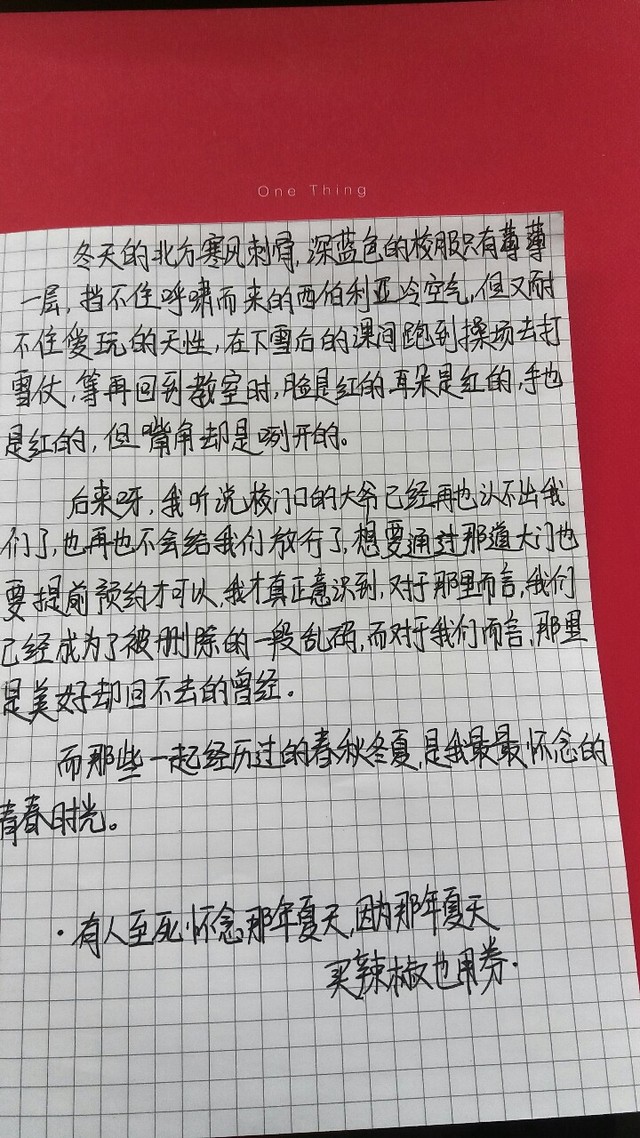 One Thing
冬天的北方寒风刺骨,深蓝色的校服只有薄薄
一层,挡不住呼啸而来的西伯利亚冷空气,但又耐
不住爱玩的天性,在下雪后的课间跑到操场去打
雪仗,等再回到教室时,脸是红的,耳朵是红的,手也
是红的,但嘴角却是咧开的。
后来呀,我听说校门口的大爷已经再也认不出我
们了,也再也不会给我们放行了,想要通过那道大门也
要提前预约才可以,我才真正意识到,对于那里而言,我们
已经成为了被删除的一段乱码,而对于我们而言,那里
是美好却回不去的曾经。
而那些一起经历过的春秋冬夏,是我最最怀念的
青春时光。
·有人至死怀念那年夏天,因为那年夏天
买辣椒也用券.